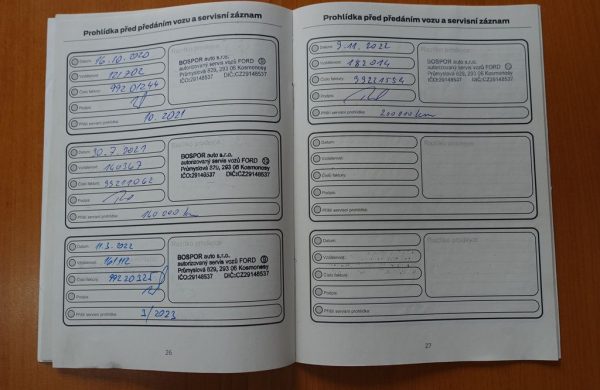 Prohlídka před předáním vozu a servisní záznam
Datum: 16.10.2020
Razítko prodejce
Vzdálenost: 121202
Číslo faktury: 99201244
Podpis:
BOSPOR auto s.r.o.
autorizovaný servis vozů FORD
Průmyslová 829, 293 06 Kosmonosy
IČO:29148537 DIČ:CZ29148537
Příští servisní prohlídka: 10.2021
Datum: 30.7.2021
Razítko prodejce
Vzdálenost: 140367
Číslo faktury: 99211062
Podpis:
BOSPOR auto s.r.o.
autorizovaný servis vozů FORD
Průmyslová 829, 293 06 Kosmonosy
IČO:29148537 DIČ:CZ29148537
Příští servisní prohlídka: 160 000 km
Datum: 11.3.2022
Razítko prodejce
Vzdálenost: 161112
Číslo faktury: 99220321
Podpis:
BOSPOR auto s.r.o.
autorizovaný servis vozů FORD
Průmyslová 829, 293 06 Kosmonosy
IČO:29148537 DIČ:CZ29148537
Příští servisní prohlídka: 3/2023
26
Prohlídka před předáním vozu a servisní záznam
Datum: 3.11.2022
Razítko prodejce
Vzdálenost: 182014
Číslo faktury: 99221594
Podpis:
BOSPOR auto s.r.o.
autorizovaný servis vozů FORD
Průmyslová 829, 293 06 Kosmonosy
IČO:29148537 DIČ:CZ29148537
Příští servisní prohlídka: 200 000 km
Datum:
Razítko prodejce
Vzdálenost:
Číslo faktury:
Podpis:
Příští servisní prohlídka:
Datum:
Razítko prodejce
Vzdálenost:
Číslo faktury:
Podpis:
Příští servisní prohlídka:
27